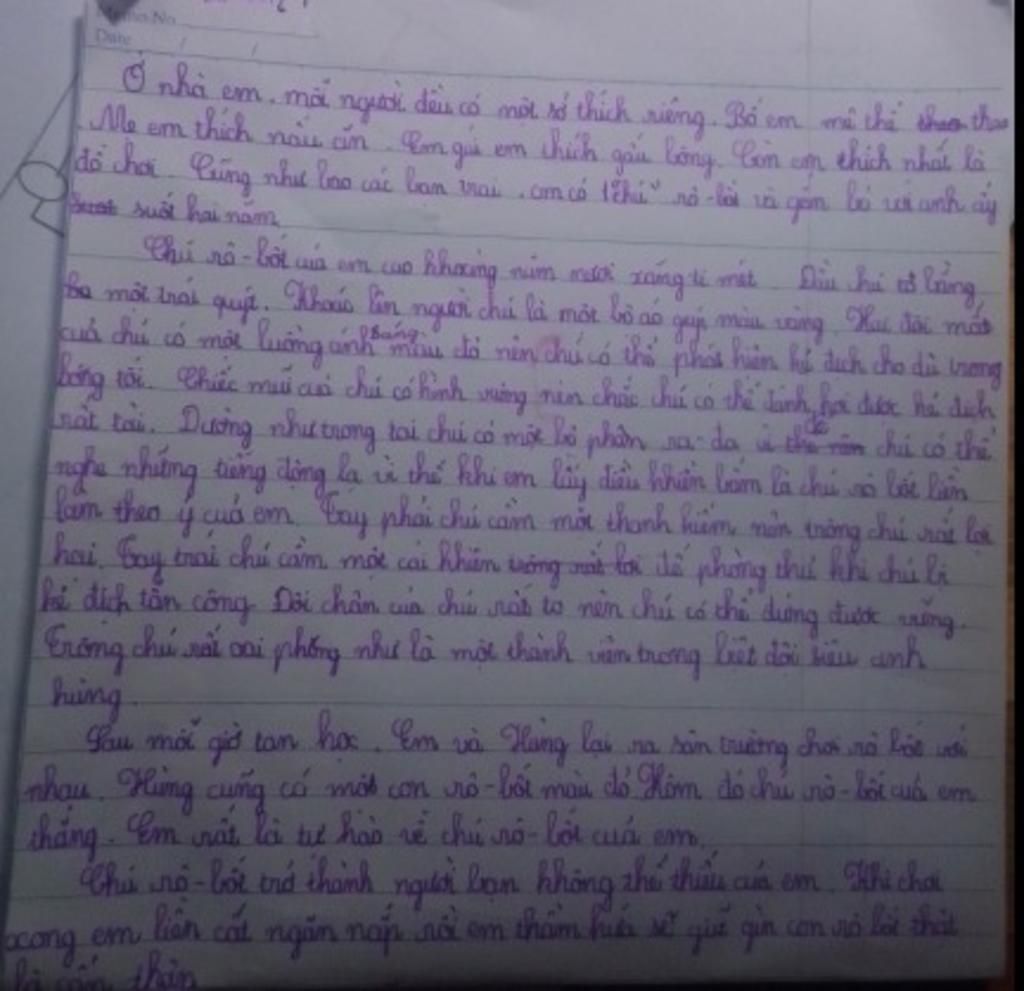 Memo No.
Date / /
Ở nhà em, mỗi người đều có một sở thích riêng. Bố em mê thể thao
Mẹ em thích nấu ăn. Em gái em thích gấu bông. Còn em thích nhất là
đồ chơi. Cũng như bao các bạn trai, em có 1 "chú" rô-bốt và gắn bó với anh ấy
suốt hai năm
Chú rô-bốt của em cao khoảng năm mươi xăng ti mét. Đầu chú to bằng
một trái quýt. Khoác lên người chú là một bộ áo giáp màu vàng. Hai đôi mắt
của chú có một luồng ánh sáng màu đỏ nên chú có thể phát hiện kẻ địch cho dù trong
bóng tối. Chiếc mũi của chú có hình vuông nên chắc chú có thể đánh hơi được kẻ địch
rất tài. Dường như trong tai chú có một bộ phận ra-đa để chú có thể
nghe những tiếng động lạ vì thế khi em lấy điều khiển bấm là chú rô bốt liền
làm theo ý của em. Tay phải chú cầm một thanh kiếm nên trông chú rất lợi
hại. Tay trái chú cầm một cái khiên để phòng thủ khi chú bị
kẻ địch tấn công. Đôi chân của chú rất to nên chú có thể đứng được vững.
Trông chú rất oai phong như là một thành viên trong biệt đội siêu anh
hùng.
Sau mỗi giờ tan học. Em và Hùng lại ra sân trường chơi rô bốt với
nhau. Hùng cũng có một con rô-bốt màu đỏ. Hôm đó chú rô-bốt của em
thắng. Em rất là tự hào về chú rô-bốt của em.
Chú rô-bốt trở thành người bạn không thể thiếu của em. Khi chơi
xong em liền cất ngăn nắp rồi em thầm hứa sẽ giữ gìn con rô bốt thật
là cẩn thận